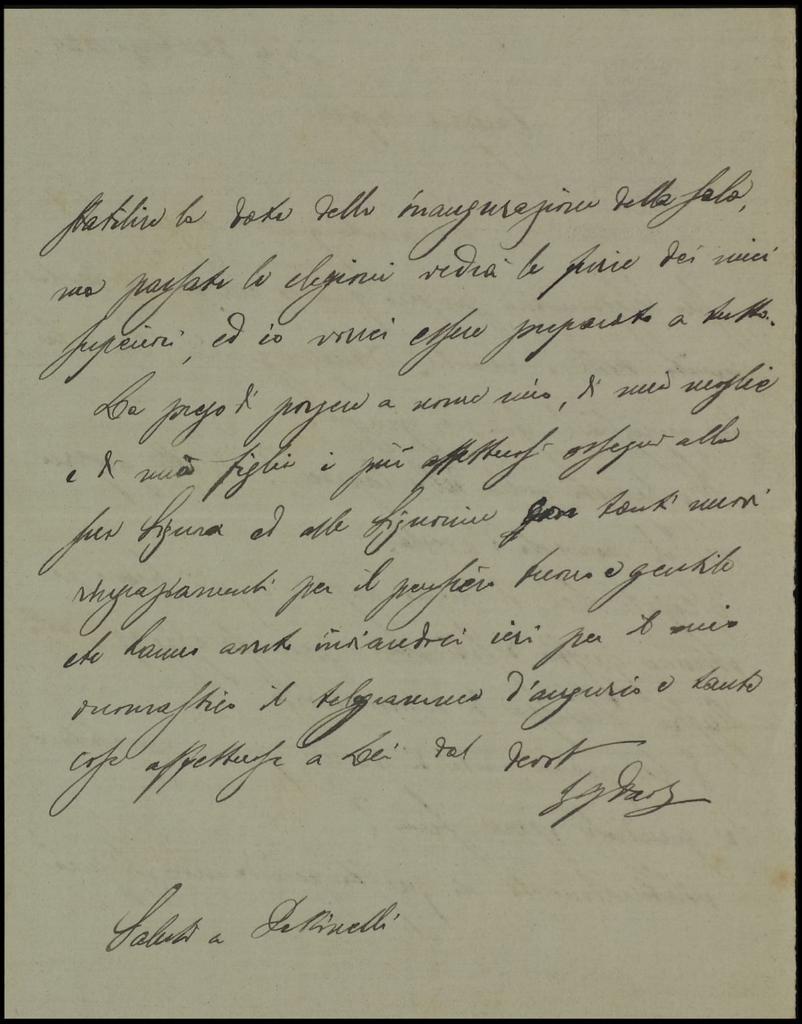 stabilire la data della inaugurazione della sala,
ma passate le elezioni vedrà le furie dei miei
superiori, ed io vorrei essere preparato a tutto.
La prego di porgere a nome mio, di mia moglie
e di mia figlia i più affettuosi ossequi alla
sua Signora ed alle Signorine con tanti nuovi
ringraziamenti per il pensiero buono e gentile
che hanno avuto inviandoci ieri per il mio
onomastico il telegramma d'augurio e tante
cose affettuose a Lei dal devot
Saluti a